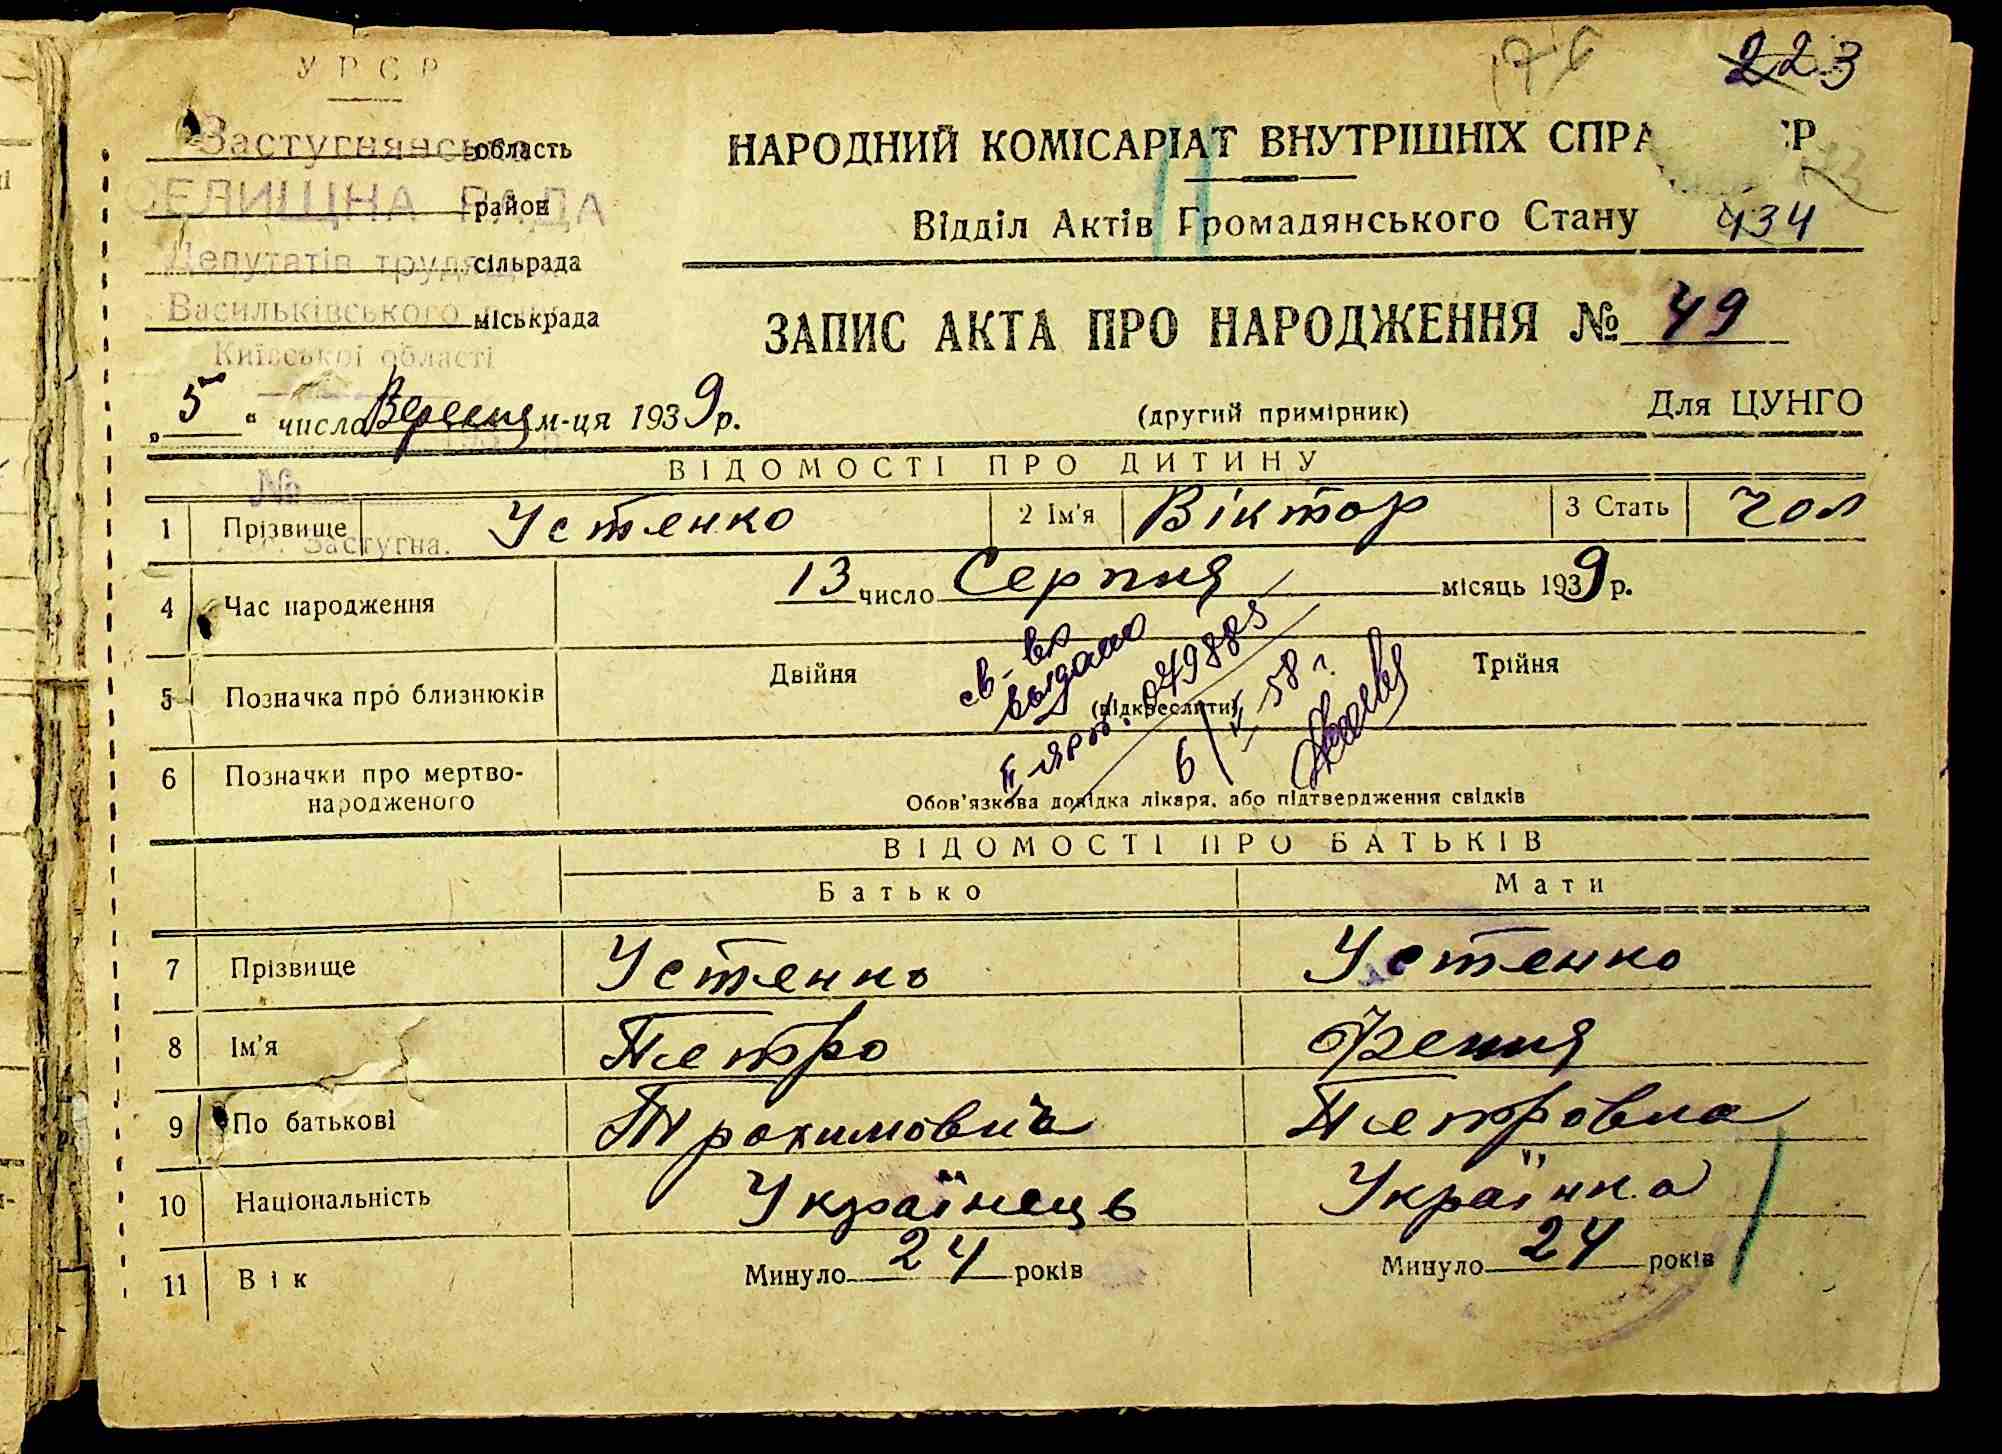 УРСР
176
223
Застугнянська область
СЕЛИЩНА РАДА район
Депутатів трудящ. сільрада
Васильківського міськрада
Київської області
НАРОДНИЙ КОМІСАРІАТ ВНУТРІШНІХ СПРА
Відділ Актів Громадянського Стану 434
ЗАПИС АКТА ПРО НАРОДЖЕННЯ № 49
„5" число Вересня м-ця 1939 р.
(другий примірник)
Для ЦУНГО
№
ВІДОМОСТІ ПРО ДИТИНУ
1 Прізвище Устенко 2 Ім'я Віктор 3 Стать чол
Застугна.
4 Час народження 13 число Серпня місяць 1939 р.
5 Позначка про близнюків Двійня (підкреслити) Трійня
св-во
выдано
049885
6/V 58 г.
6 Позначки про мертвонародженого
Обов'язкова довідка лікаря, або підтвердження свідків
ВІДОМОСТІ ПРО БАТЬКІВ
Батько Мати
7 Прізвище Устенко Устенко
8 Ім'я Петро Фення
9 По батькові Трохимович Петровна
10 Національність Українець Українка
11 Вік Минуло 24 років Минуло 24 років